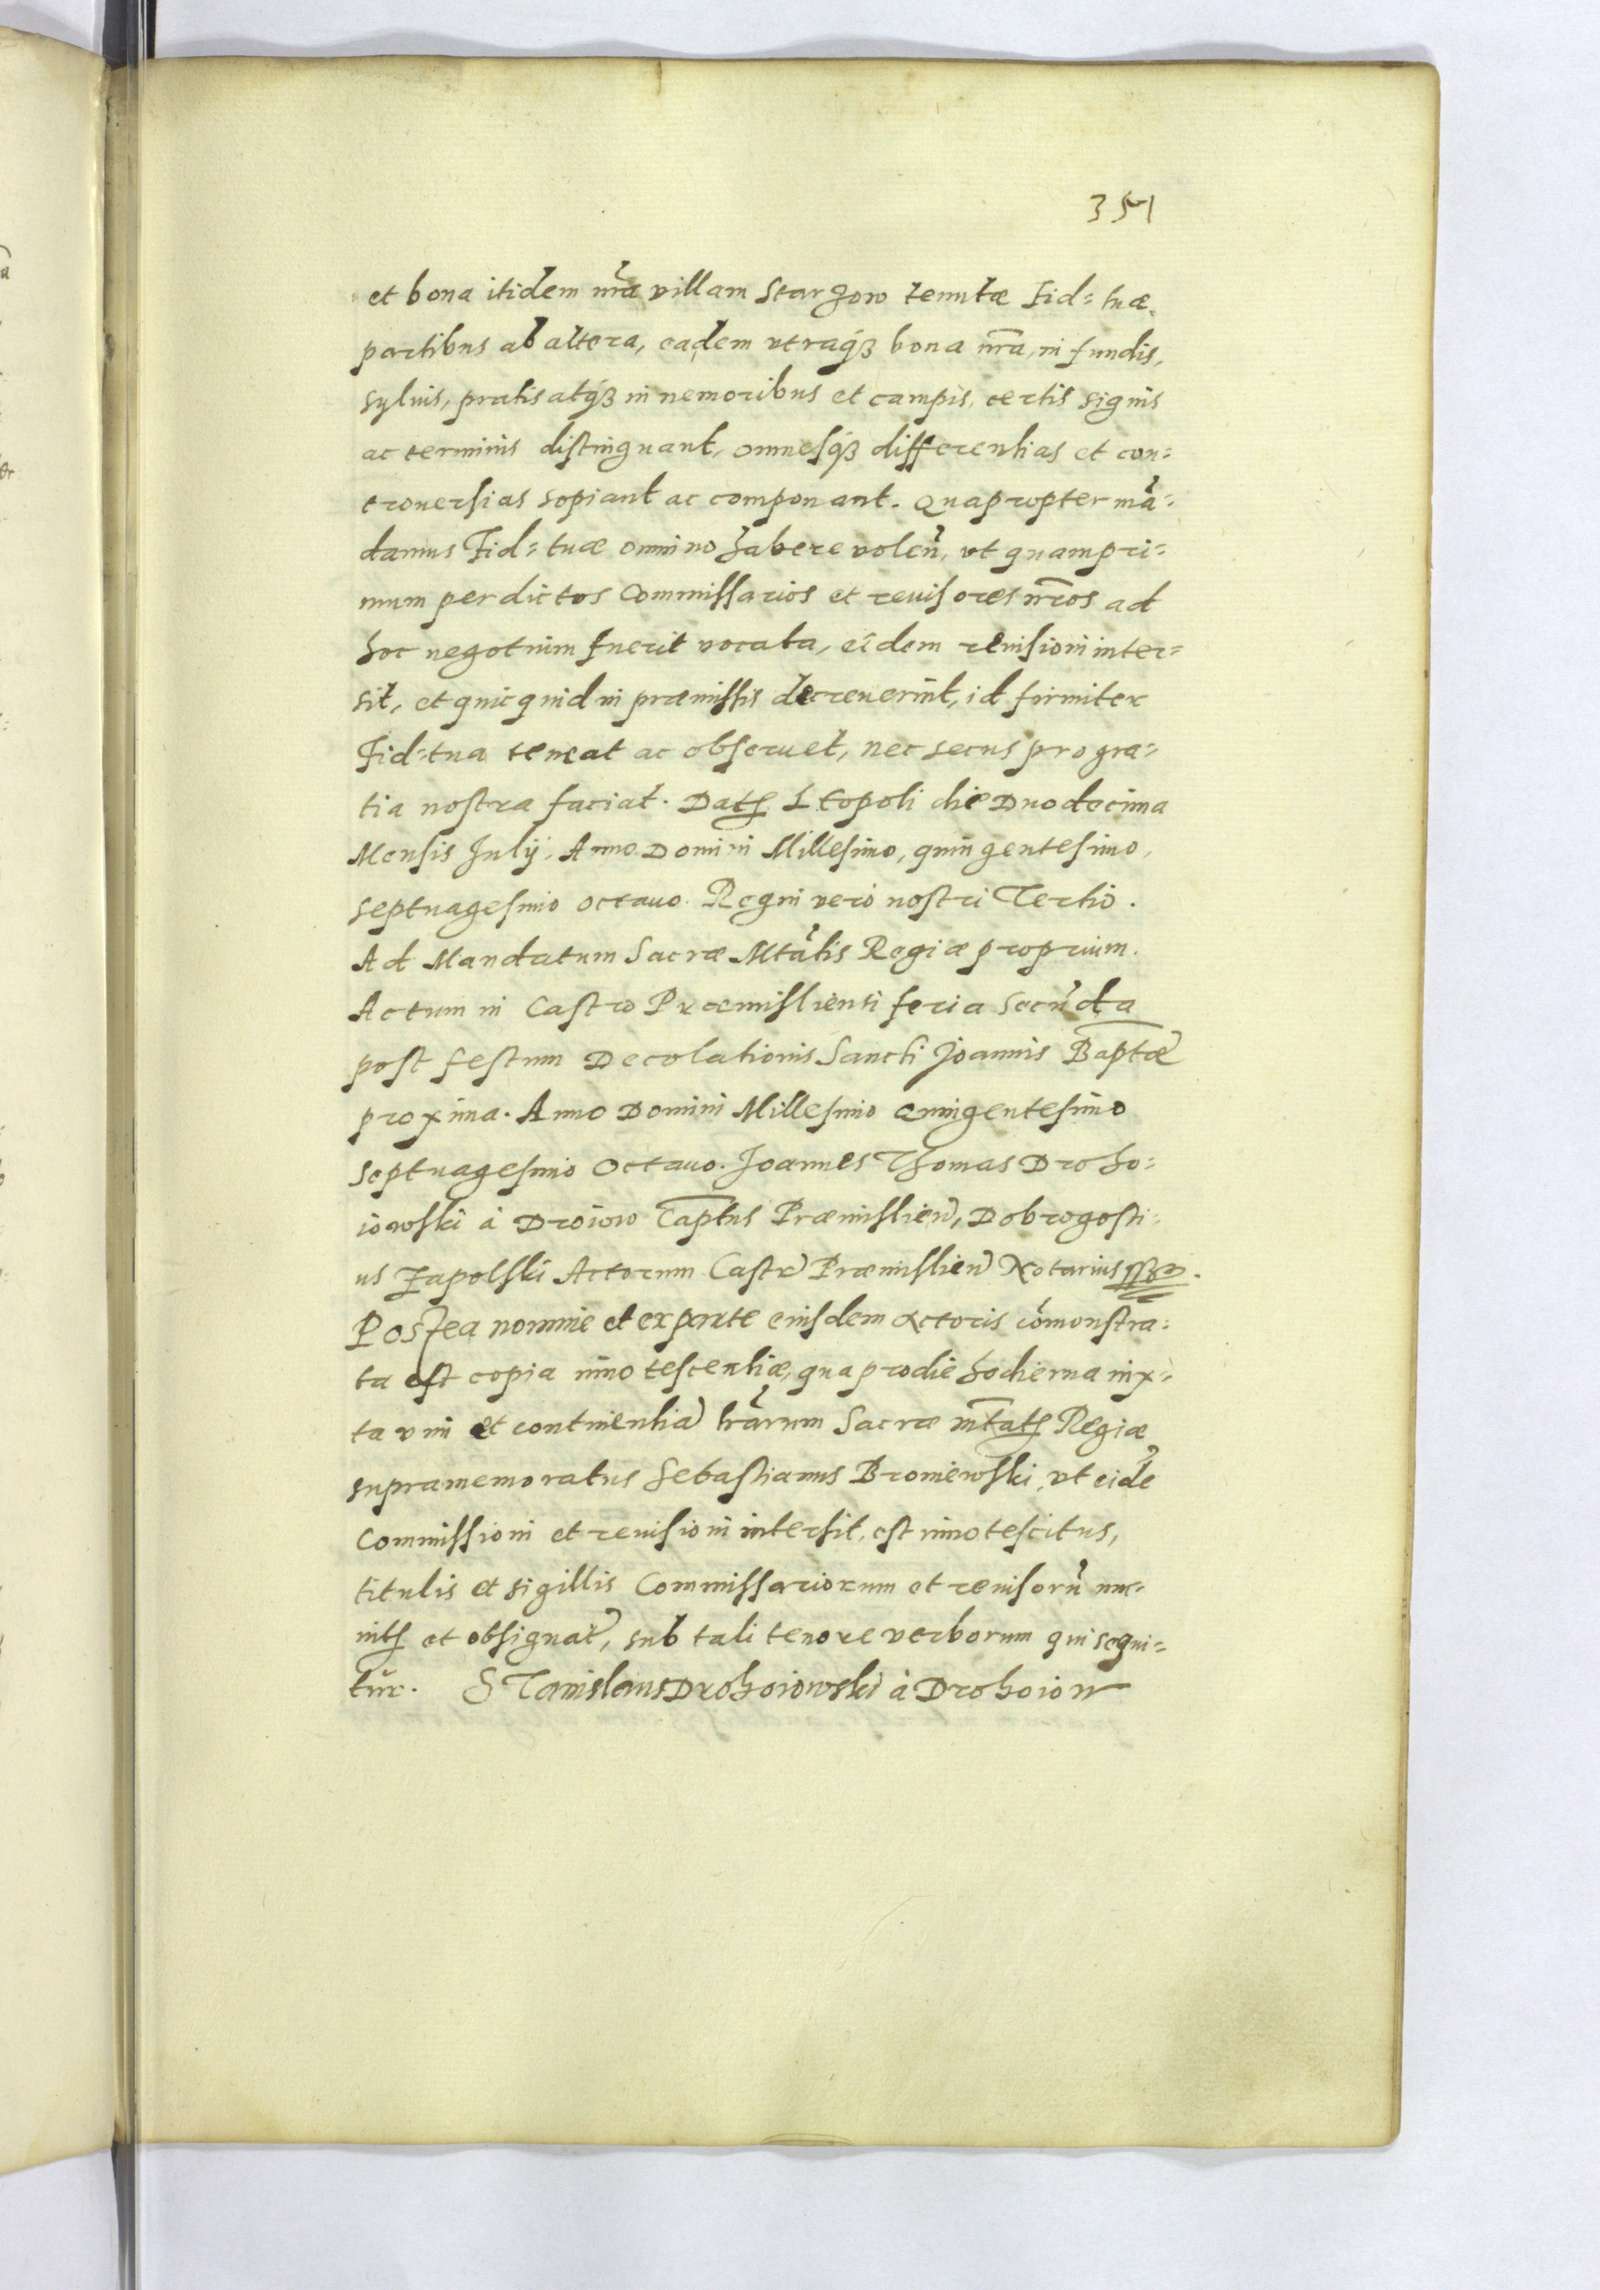 351
et bona itidem nr̃a villam Starzow tenutæ Fid= tuæ
partibus ab altera, eadem vtraq́ꝫ bona nr̃a, in fundis,
syluis, pratis atq́ꝫ in nemoribus et campis, certis signis
ac terminis distinguant, omnesq́ꝫ differentias et con=
trouersias sopiant ac componant. Quapropter mã=
damus Fid= tuæ omnino habere volen̄, vt quampri=
mum per dictos Commissarios et reuisores nr̃os ad
hoc negotium fuerit vocata, eidem reuisioni inter=
sit, et quicquid in præmissis decreuerint, id firmiter
Fid= tua teneat ac obseruet, nec secus pro gra=
tia nostra faciat. Datꝭ Leopoli die Duodecima
Mensis Julÿ. Anno Domini Millesimo, quingentesimo,
septuagesimo octauo. Regni vero nostri Tertio.
Ad Mandatum Sacræ Mtatis Regiæ proprium.
Actum in Castro Præmisliensi feria secūda
post festum Decolationis Sancti Joannis Baptæ
proxima. Anno Domini Millesimo Quingentesimo
septuagesimo Octauo. Joannes Thomas Droho=
iowski à Droiow Captus Præmislien̄, Dobrogosti=
us Zapolski Actorum Castr̄ Præmislien̄ Notarius
Postea nomine et ex parte eiusdem Actoris cōmonstra=
ta est copia innotescentiæ, qua pro die hodierna iux=
ta vim et continentiā lr̃arum Sacræ mtatꝭ Regiæ
supramemoratus Sebastianus Broniewski, vt eidē
Commissioni et reuisioni intersit, est innotescitus,
titulis et sigillis Commissariorum et reuisorū mu=
nitꝭ et obsignat̄, sub tali tenore verborum qui sequi=
tur. STanislaus Drohoiowski à Drohoiow